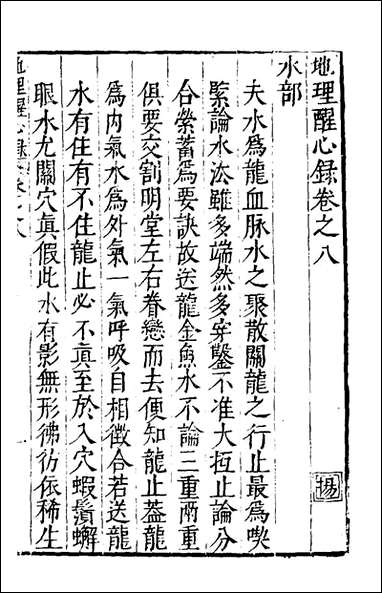 地理醒心錄卷之八
揚
水部
夫水爲龍血脉水之聚散關龍之行止最爲喫
緊論水法雖多端然多穿鑿不准大抵止論分
合縈蓄爲要訣故送龍金魚水不論三重兩重
俱要交割明堂左右眷戀而去便知龍止葢龍
爲内氣水爲外氣一氣呼吸自相徵合若送龍
水有住有不住龍止必不眞至於入穴蝦鬚蠏
眼水尤關穴眞假此水有影無形彿彷依稀生
地理醒心錄